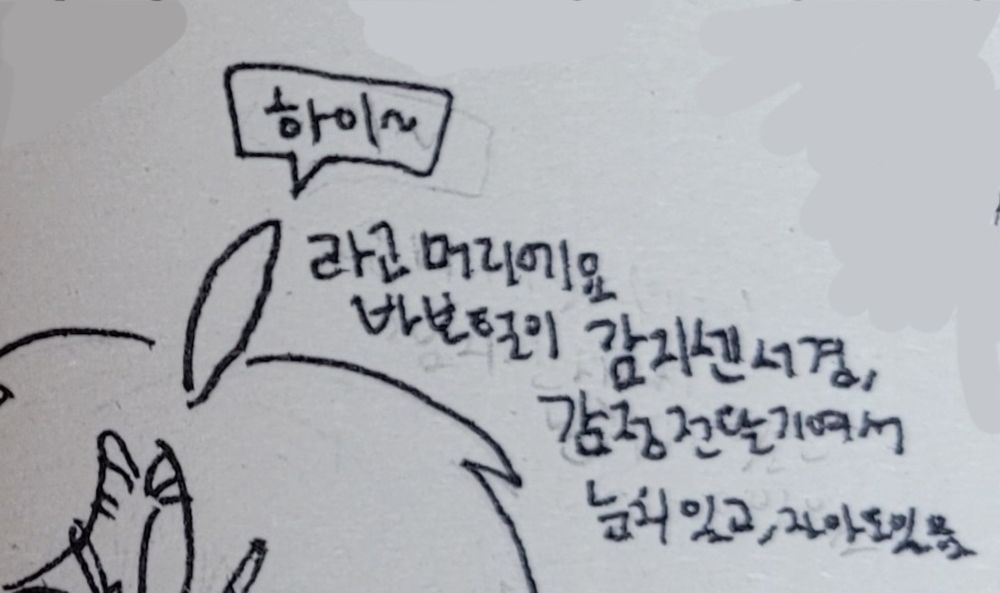 하이~
라고 머리에요
바보털이 감지센서겸,
감정전달기여서
눈치 있고, 자아도 있음